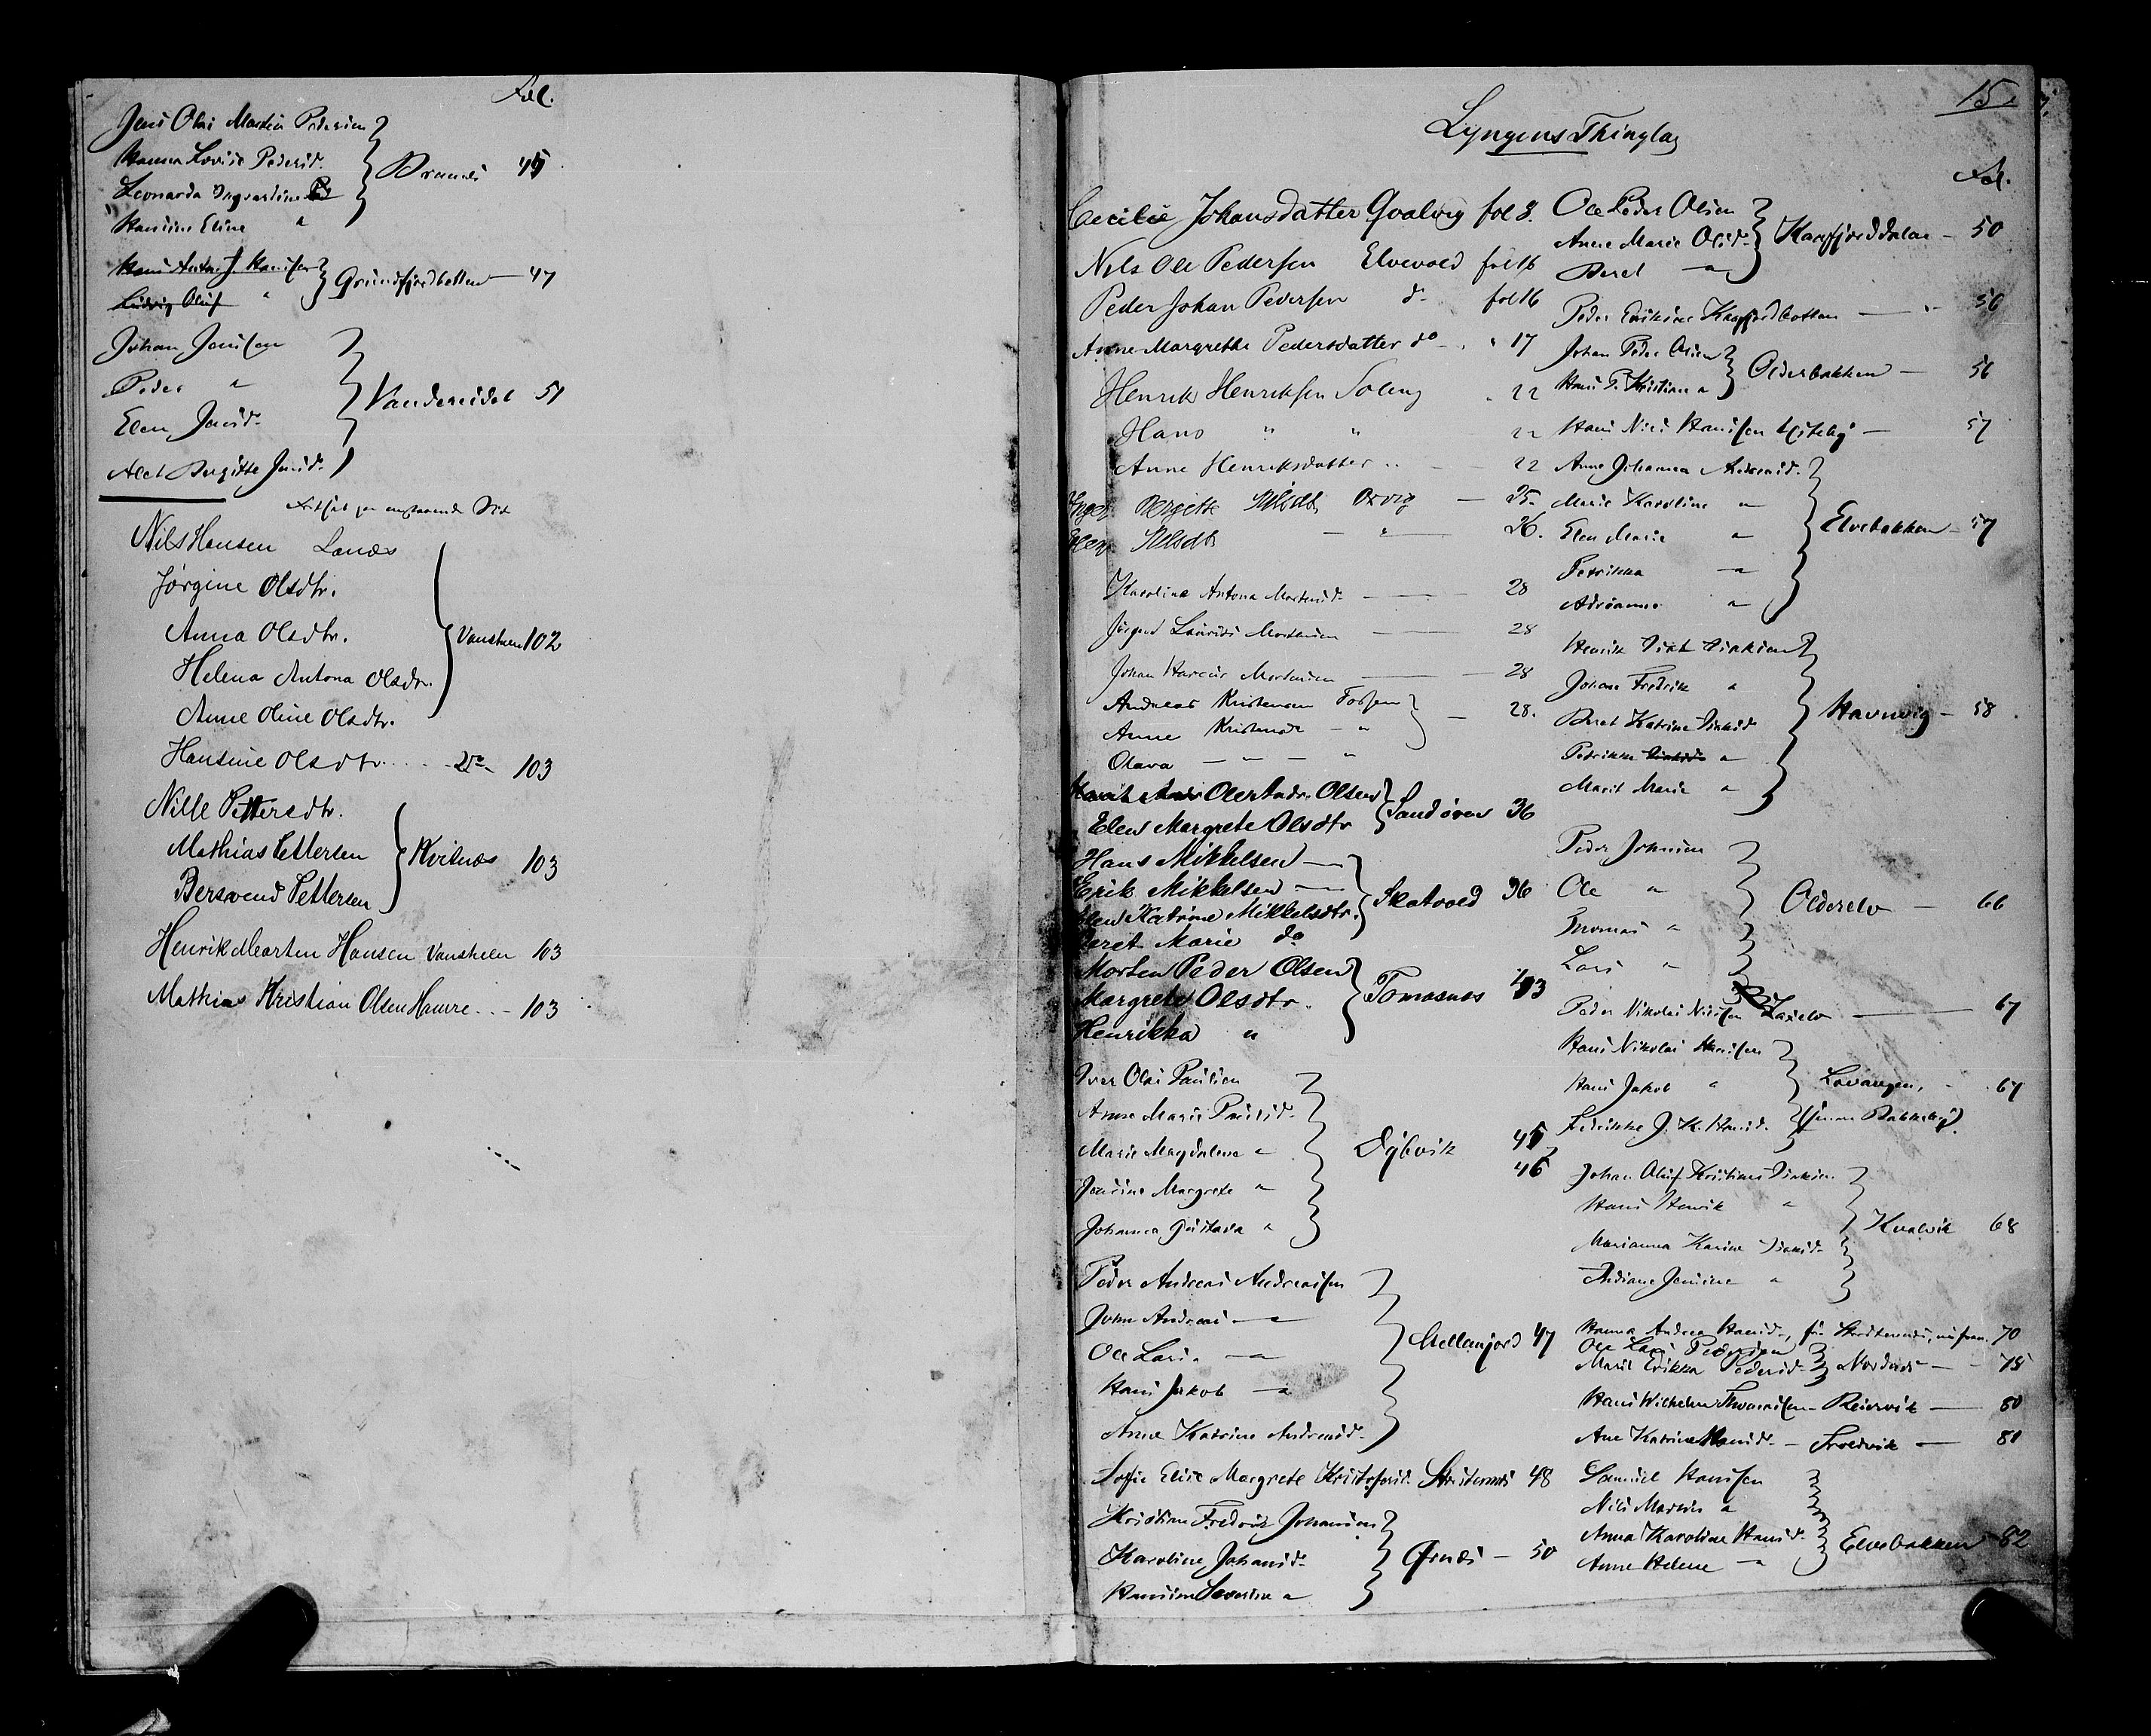 Fol.
Jens Olai Martin Pedersen
Hanna Lovise Pedersd.
Leonarda Ingvardine
Hansine Eline "
45
Hans Anton J. Hansen
Ludvig Oluf "
Grundfjordbotten — 47
Johan Jensen
Peder "
Elen Jensd.
Alet Bergitte Jensd.
Vandereidet 51
Nils Hansen Lanæs
Jørgine Olsdtr.
Anna Olsdtr.
Helena Antona Olsdtr.
Anne Oline Olsdtr.
Vanstuen 102
Hansine Olsdtr. . . . - Do - 103
Nille Pettersdtr.
Mathias Pettersen
Bersvend Pettersen
Kvitnæs 103
Henrik Morten Hansen Vanstuen 103
Mathias Kristian Olsen Hamre . . - 103
15.
Lyngens Thinglag
Cecilie Johansdatter Qvalvig fol 8.
Nils Ole Pedersen Elvevold fol 16
Peder Johan Pedersen do fol 16
Anne Margrethe Pedersdatter do - . " 17
Henrik Henriksen Soleng " 22
Hans " " 22
Anne Henriksdatter .. — 22
Inger Bergitte Nilsdtr Oxvig — 25.
Elen Nilsdtr — " — 26.
Karoline Antona Mortensd. — 28
Jørgen Laurits Mortensen — 28
Johan Marcus Mortensen — 28
Andreas Kristensen Fossen
Anne Kristensd. - "
Olava — " — "
— 28.
Ole Andr. Olsen
Elen Margrete Olsdtr
Sandøren 36
Hans Mikkelsen —
Erik Mikkelsen —
Elen Katrine Mikkelsdtr.
Beret Marie do
Skatvold 36
Morten Peder Olsen
Margrete Olsdtr.
Henrikka "
Tomasnes 43
Iver Olai Paulsen
Anne Marie Paulsd.
Marie Magdalena "
Jensine Margrete "
Johanna Gustava "
Dybvik 45
46
Peder Andreas Andreassen
John Andreas — "
Ole Lars. — "
Hans Jakob — "
Anne Katrine Andreasd.
Mellanjord 47
Sofie Elise Margrete Kristofersd. Storstennes 48
Kristian Fredrik Johansen
Karoline Johansd.
Hansine Severine "
Ørnæs — 50
Fol.
Ole Peder Olsen
Anne Marie Olsd.
Beret — "
Kaafjorddalen — 50
Peder Eriksen Kaafjordbotten — " 56
Johan Peder Olsen
Hans P. Kristian "
Olderbakken — 56
Hans Nils Hansen — 57
Anne Johanna Andreasd.
Marie Karoline "
Elen Marie "
Petrikka — "
Adrianna "
Elvebakken — 57
Henrik Dirk Dirksen
Johan Fredrik "
Beret Katrine Dirksd.
Petrikke "
Marit Marie "
Havnvig — 58
Peder Johnsen
Ole "
Thomas "
Lars "
Olderelv — 66
Peder Nikolai Nilsen Laxelv — 67
Hans Nikolai Hansen
Hans Jakob "
Fredrikke J. K. Hansd.
Lovangen, - 67
Johan Oluf Kristian Dirksen
Hans Henrik "
Marianna Karine Dirksd.
Andiane Jensine "
Kvalvik 68
Hanna Andrea Hansd., 70
Ole Lars Pedersen
Marit Erikka Pedersd.
Nordnæs — 75
Hans Wilhelm Thomassen — Reiervik — 80
Ane Katrine Hansd. — Troldvik — 81
Samuel Hansen
Nils Martin "
Anna Karoline Hansd.
Anne Helene — "
Elvebakken 82